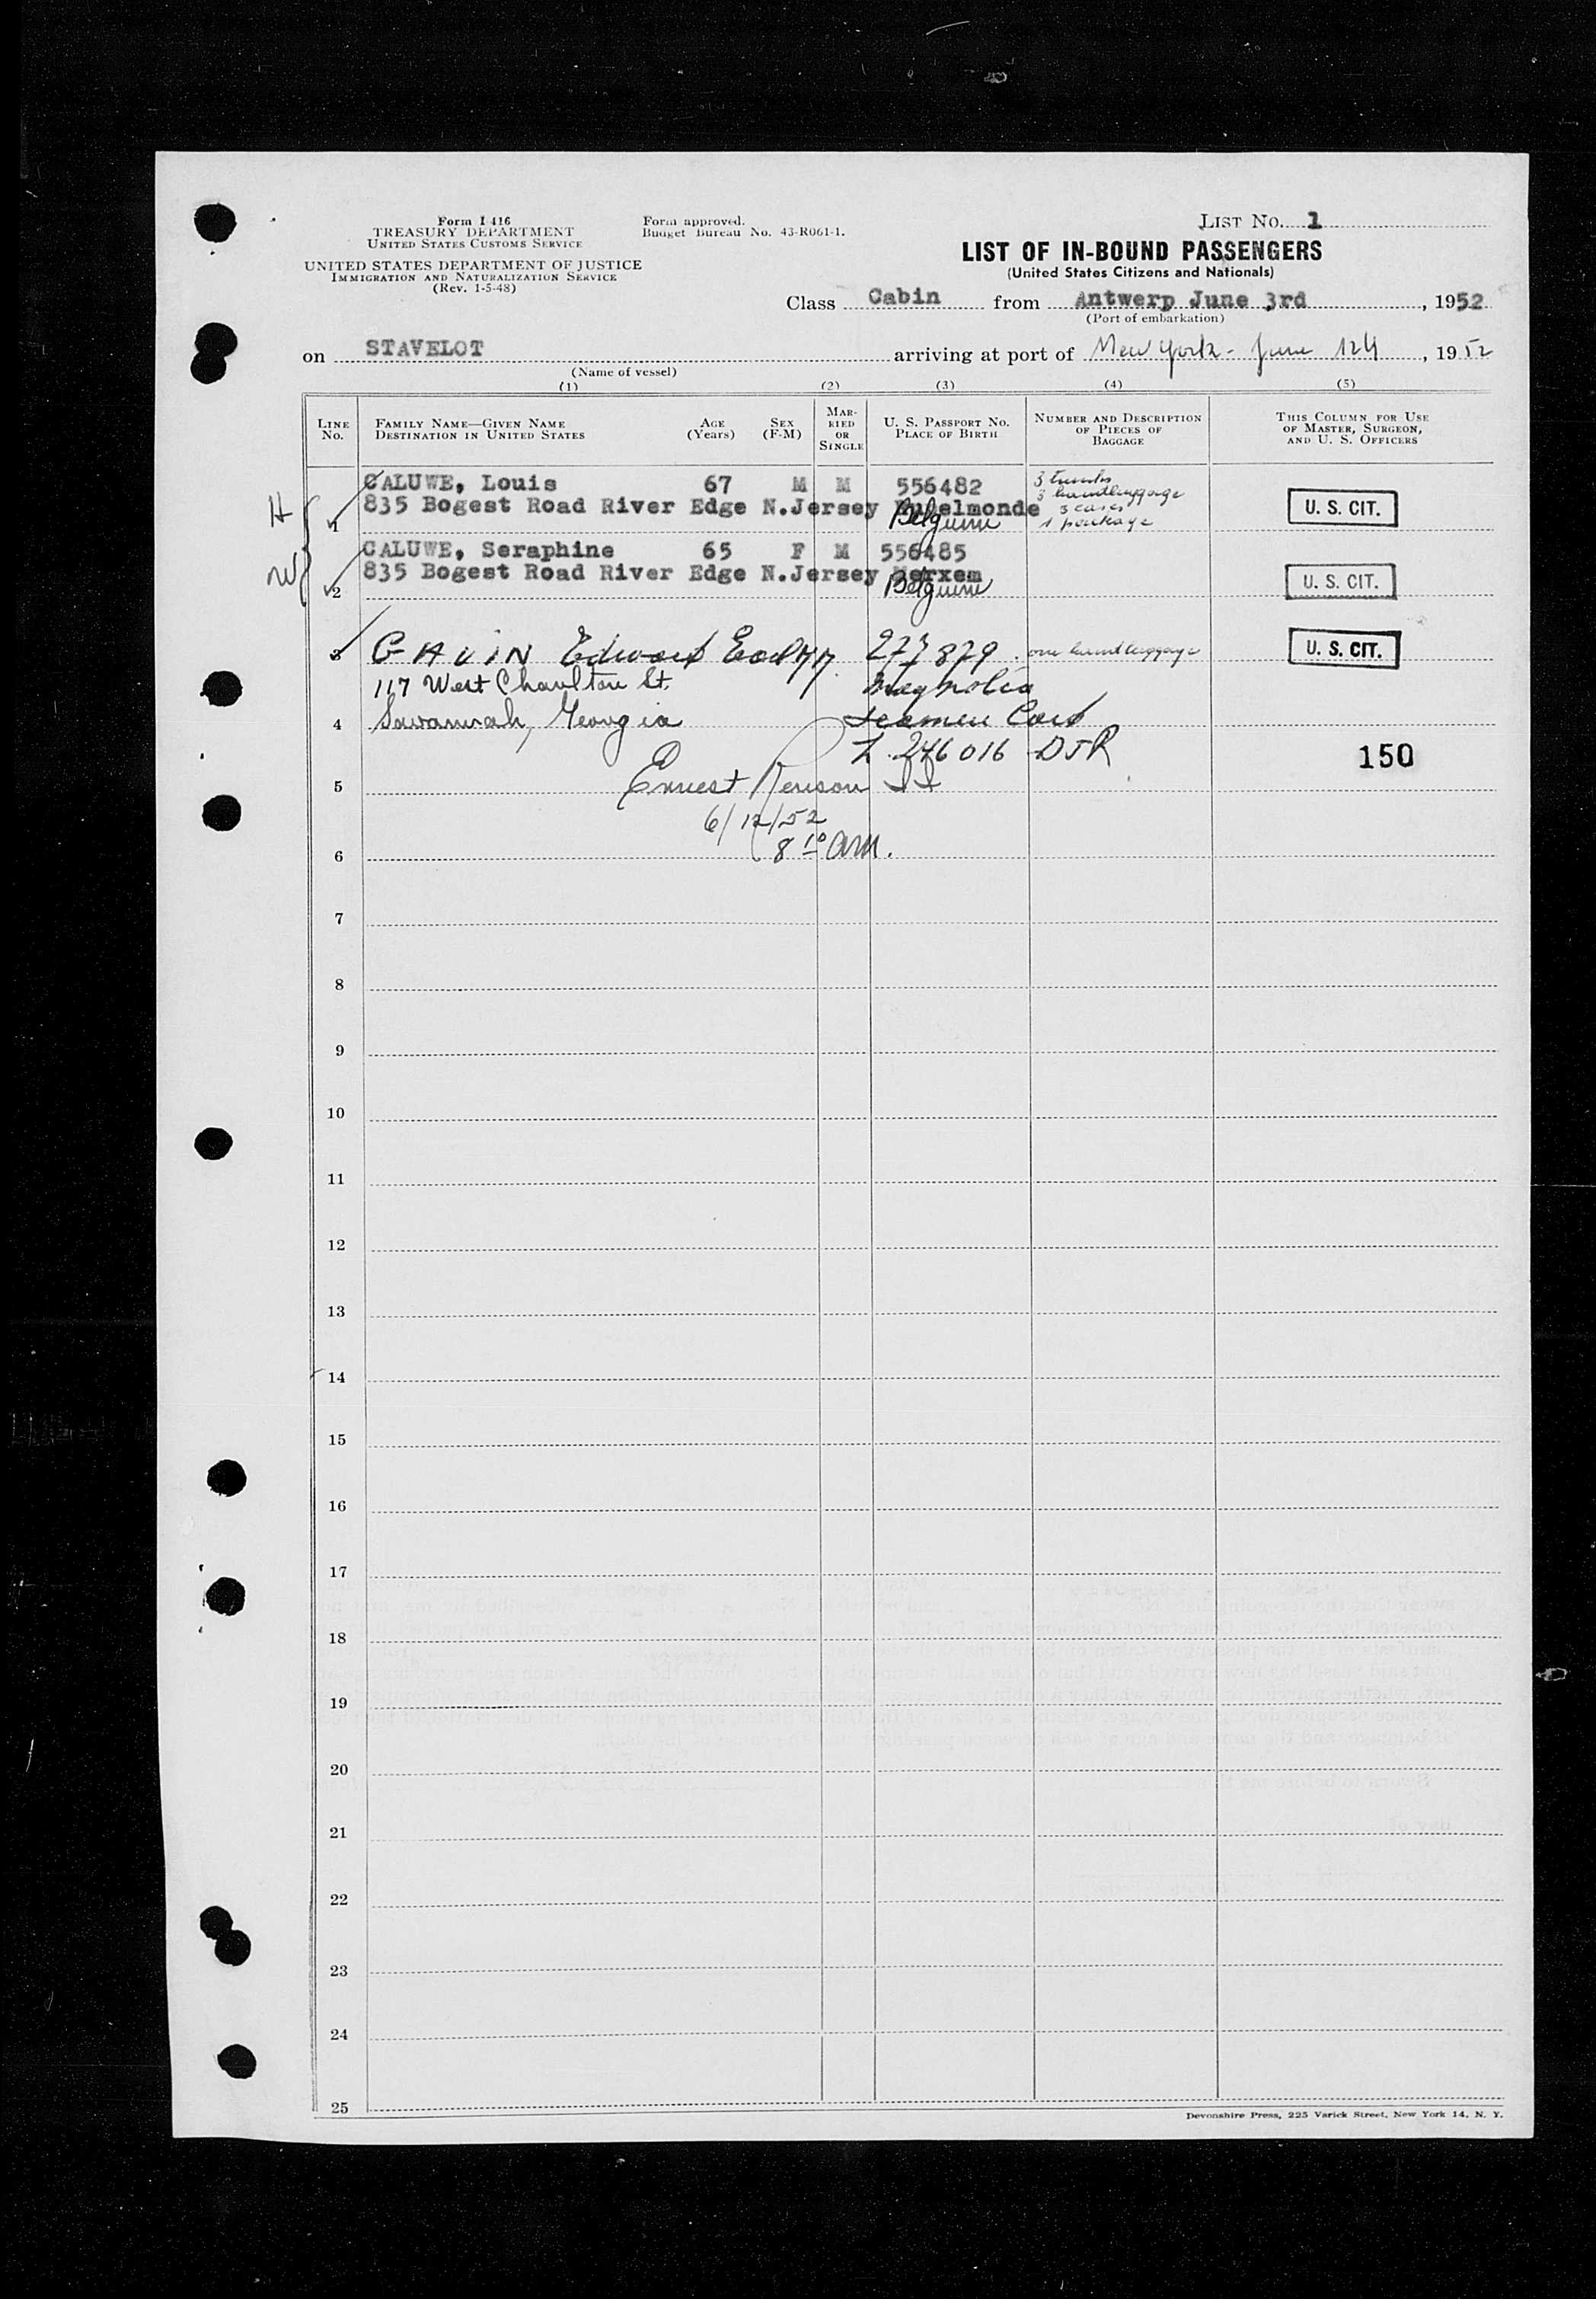 Form I 416
TREASURY DEPARTMENT
UNITED STATES CUSTOMS SERVICE
UNITED STATES DEPARTMENT OF JUSTICE
IMMIGRATION AND NATURALIZATION SERVICE
(Rev. 1-5-48)
Form approved.
Budget Bureau No. 43-R061-1.
LIST NO. 1
LIST OF IN-BOUND PASSENGERS
(United States Citizens and Nationals)
Class Cabin from Antwerp June 3rd, 1952
(Port of embarkation)
on STAVELOT arriving at port of New York - June 12th, 1952
(Name of vessel)
(1) (2) (3) (4) (5)
LINE NO. FAMILY NAME—GIVEN NAME DESTINATION IN UNITED STATES AGE (Years) SEX (F-M) MARRIED OR SINGLE U. S. PASSPORT NO. PLACE OF BIRTH NUMBER AND DESCRIPTION OF PIECES OF BAGGAGE THIS COLUMN FOR USE OF MASTER, SURGEON, AND U. S. OFFICERS
H CALUWE, Louis 67 M M 556482 3 trunks
3 handluggage
1 835 Bogest Road River Edge N.Jersey Rupelmonde 3 cases U. S. CIT.
Belguim 1 package
W CALUWE, Seraphine 65 F M 556485
2 835 Bogest Road River Edge N.Jersey Merxem U. S. CIT.
Belguim
3 GAVIN Edward Earl M M. 277879. one handluggage U. S. CIT.
117 West Charlton St. Magnolia
4 Savannah, Georgia Seamen Card
Z. 246016 DJR 150
5 Ernest Renson II
6/12/52
6 8 10 AM.
7
8
9
10
11
12
13
14
15
16
17
18
19
20
21
22
23
24
25
Devonshire Press, 225 Varick Street, New York 14, N. Y.